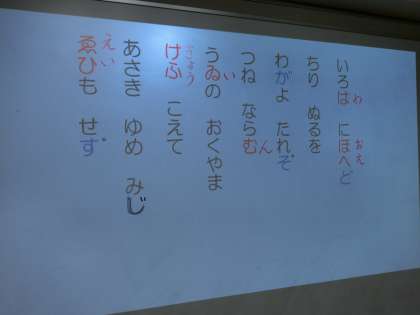 わ おえ
いろは にほへど
ちり ぬるを
わがよ たれぞ
ん
つね ならむ
い
うゐの おくやま
きょう
けふ こえて
あさき ゆめ みじ
えい
ゑひも せず